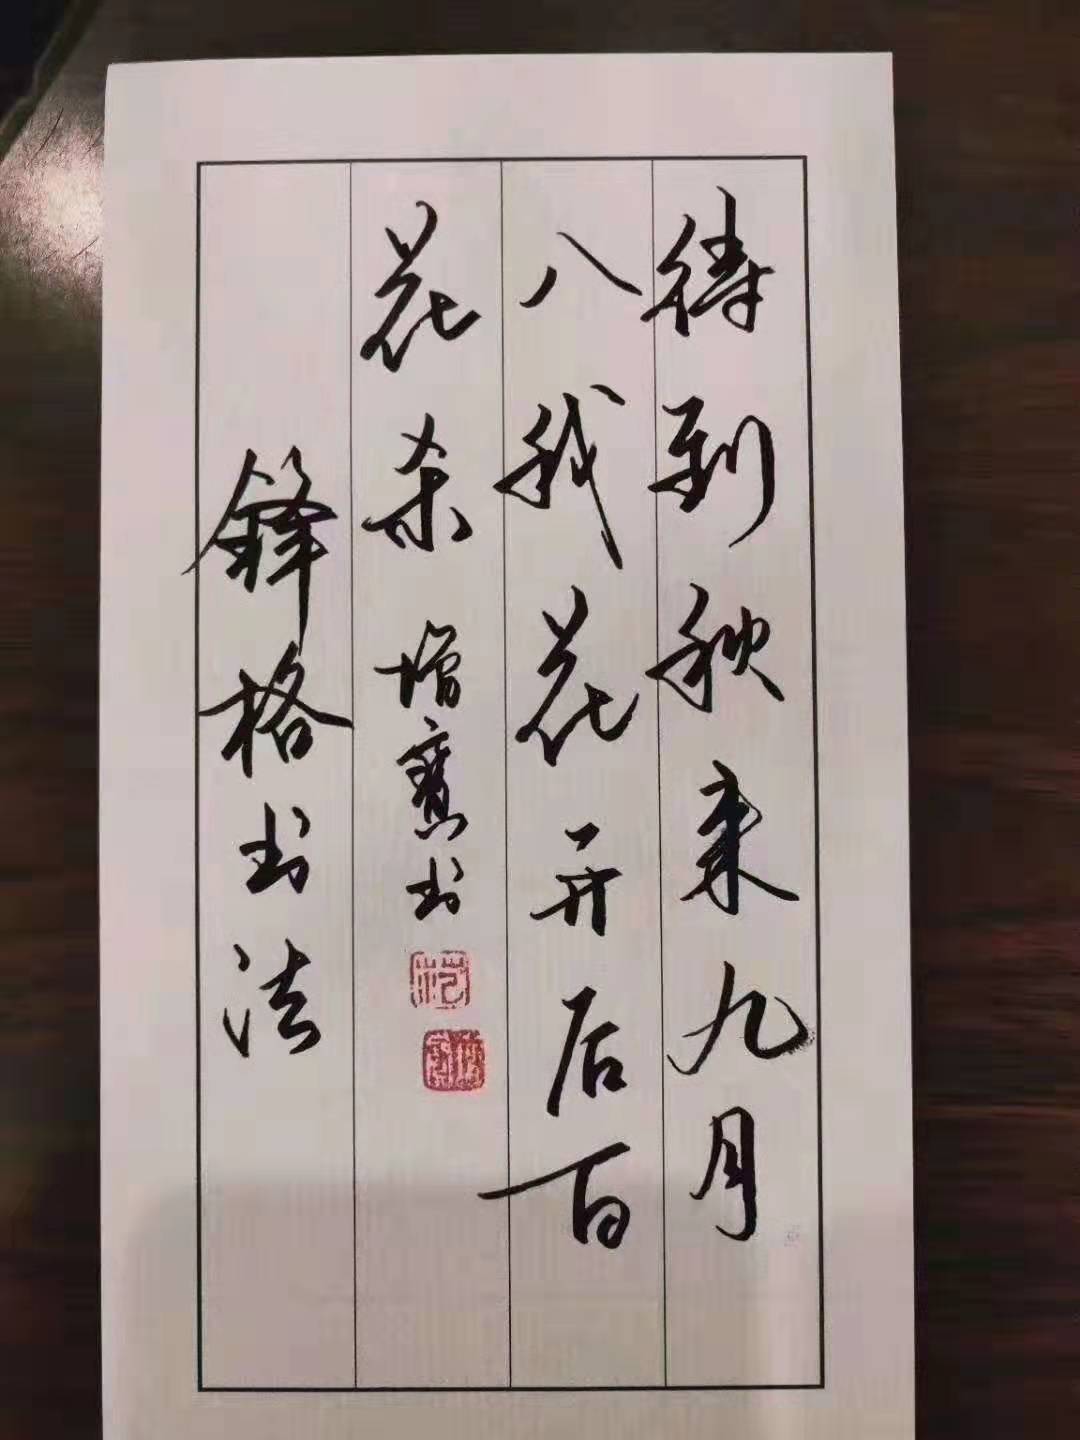 待到秋来九月
八我花开后百
花杀 增宝书
锋格书法